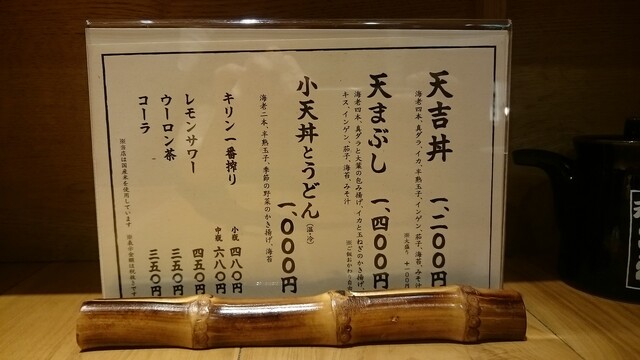 天吉丼 一、二〇〇円
海老四本、真ダラ、イカ、半熟玉子、インゲン、茄子、海苔、みそ汁
※大盛り 十一〇〇円
天まぶし 一、四〇〇円
海老四本、真ダラと大葉の包み揚げ、イカと玉ねぎのかき揚げ、
キス、インゲン、茄子、海苔、みそ汁
※ご飯おかわり自由
小天丼とうどん（温・冷） 一、〇〇〇円
海老二本、半熟玉子、季節の野菜のかき揚げ、海苔
キリン一番搾り
小瓶 四八〇円
中瓶 六八〇円
レモンサワー 四五〇円
ウーロン茶 三五〇円
コーラ 三五〇円
※当店は国産米を使用しています
※表示金額は税抜きです